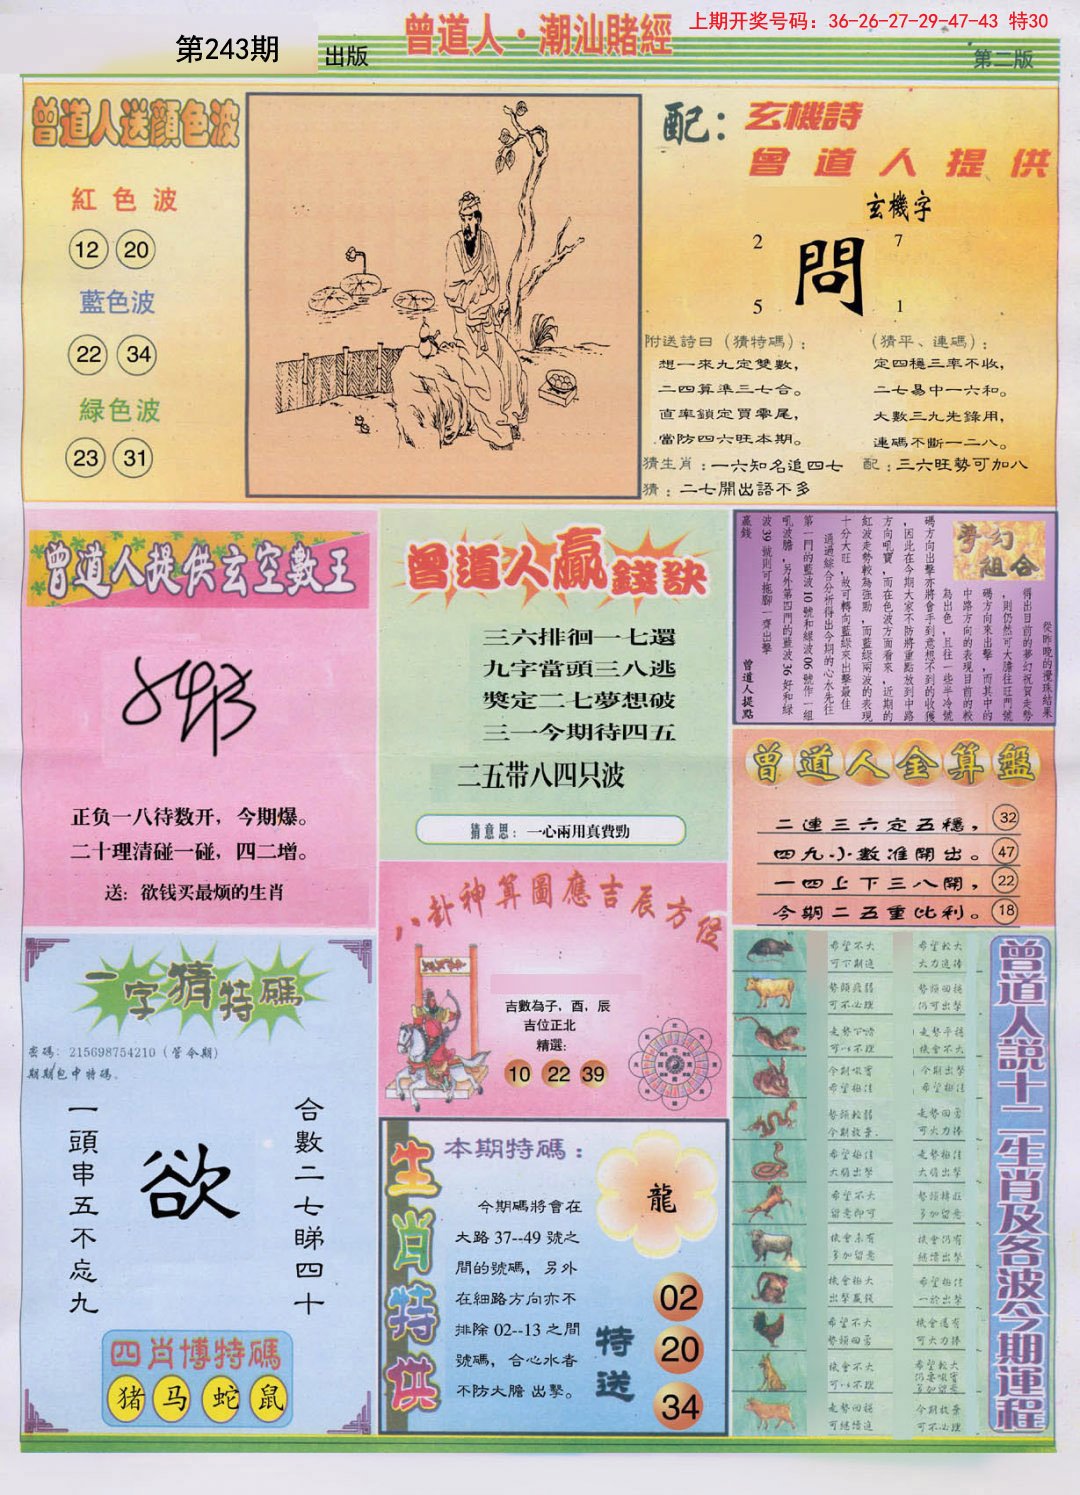 上期开奖号码：36-26-27-29-47-43 特30
第243期
出版
曾道人·潮汕賭經
第二版
曾道人送顏色波
紅色波
12 20
藍色波
22 34
緑色波
23 31
配：
玄機詩
曾道人提供
玄機字
2 7
問
5 1
附送詩曰（猜特碼）：
想一來九定雙數，
二四算準三七合。
直率鎖定買零尾，
當防四六旺本期。
（猜平、連碼）：
定四穩三率不收，
二七易中一六和。
大數三九先錄用，
連碼不斷一二八。
猜生肖：一六知名追四七 配：三六旺勢可加八
猜：二七開出語不多
曾道人提供玄空數王
正负一八待数开，今期爆。
二十理清碰一碰，四二增。
送：欲钱买最烦的生肖
曾道人贏錢訣
三六排徊一七還
九字當頭三八逃
獎定二七夢想破
三一今期待四五
二五带八四只波
猜意思：一心兩用真費勁
夢幻組合
從昨晚的攪珠結果
得出目前的夢幻祝賀走勢
，則仍然可大膽往旺門號
碼方向來出擊，而其中的
中路方向的表現目前的較
為出色，且往一些半冷號
碼方向出擊亦將會手到意想不到的收獲
，因此在今期大家不防將重點放到中路
方向吼寶，而在色波方面看來，近期的
紅波走勢較為強勁，而藍綠兩波的表現
十分大旺，故可轉向藍綠來出擊最佳
。通過綜合分析得出今期的心水先往
第一門的藍波10號和綠波06號作一組
吼波膽，另外第四門的藍波36好和綠
波39號則可拖腳一齊出擊
贏錢
曾道人提點
曾道人金算盤
二連三六定五穩， 32
四九小數准開出。 47
一四上下三八開， 22
今期二五重比利。 18
一字猜特碼
密碼：215698754210（管令期）
期期包中特碼。
一頭串五不忘九
欲
合數二七睇四十
四肖博特碼
猪 马 蛇 鼠
八卦神算圖應吉辰方位
吉數為子，酉，辰
吉位正北
精選：
10 22 39
生肖特供
本期特碼：
今期碼將會在
大路37--49號之
間的號碼，另外
在細路方向亦不
排除02--13之間
號碼，合心水者
不防大膽出擊。
龍
特送
02
20
34
曾道人說十二生肖及各波今期運程
希望不大
可下期追
希望較大
大力追捧
可不必理
仍可出擊
機會不大
今期吼寶
希望極佳
今期出擊
希望極佳
今期放棄.
可大力捧
大膽出擊
大膽出擊
希望不大
留意即可
多加留意
機會未有
多加留意
機會仍有
繼續出擊
機會極大
出擊贏錢
希望極佳
一於出擊
希望不大
機會還有
可大力捧
機會不大
希望較大
多加留意
可繼續追
今期放棄
可不必理